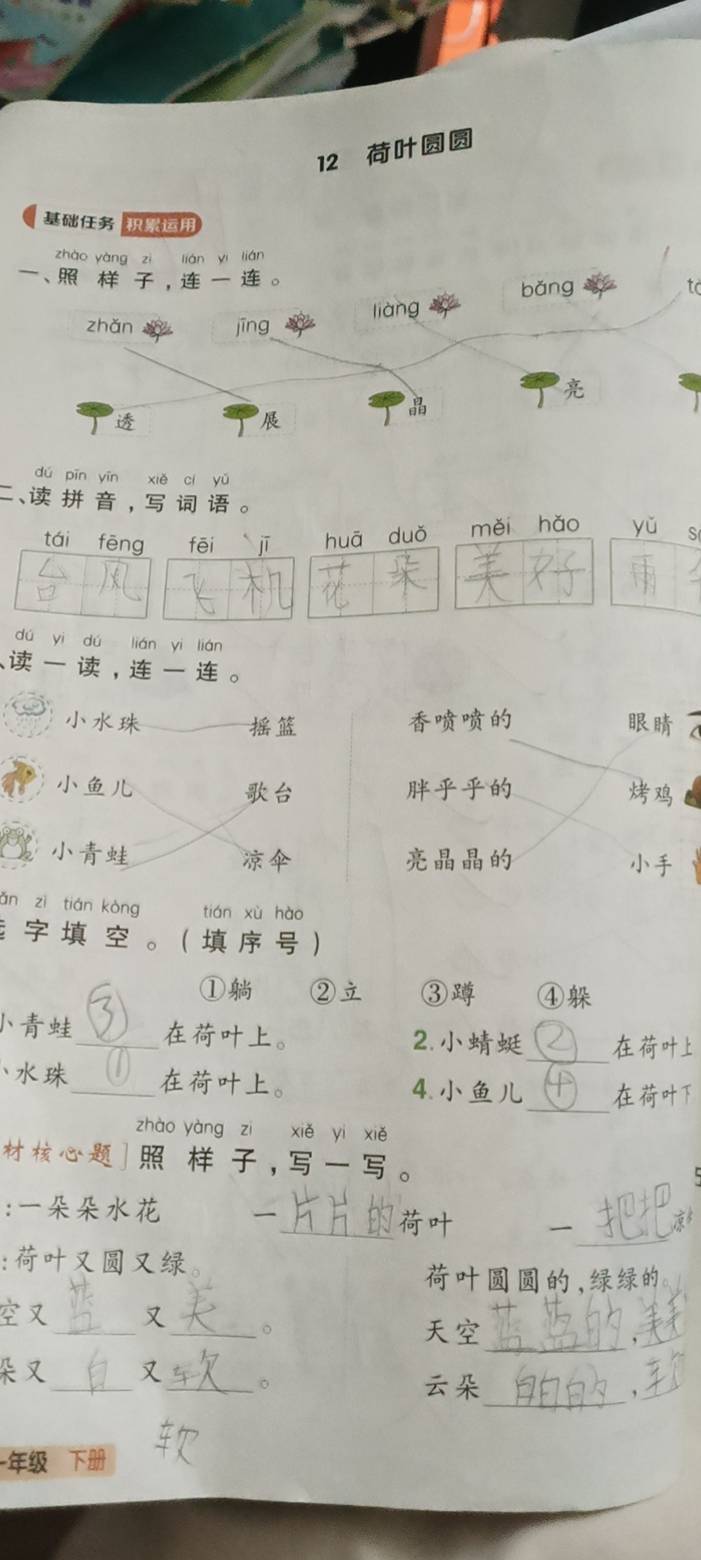 12 荷叶圆圆
基础任务 积累运用
zhào yàng zi lián yi lián
一、照样子,连一连。
zhǎn jīng liàng bǎng
透 展 晶 亮
dú pīn yīn xiě cí yǔ
二、读拼音,写词语。
tái fēng fēi jī huā duǒ měi hǎo yǔ
台风 飞机 花朵 美好 雨
dú yi dú lián yi lián
、读一读,连一连。
小水珠 摇篮 香喷喷的 眼睛
小鱼儿 歌台 胖乎乎的 烤鸡
小青蛙 凉伞 亮晶晶的 小手
zì tián kòng tián xù hào
字填空。(填序号)
①躺 ②立 ③蹲 ④躲
小青蛙 ③ 在荷叶上。 2.小蜻蜓 ② 在荷叶上
水珠 ① 在荷叶上。 4.小鱼儿 ④ 在荷叶下
zhào yàng zi xiě yi xiě
材核心题]照样子,写一写。
:一朵朵水花 一片片的荷叶 一把把凉
:荷叶又圆又绿。 荷叶圆圆的,绿绿的。
空又蓝又美。 天空蓝蓝的,美美
朵又白又软。 云朵白白的,软
软
一年级 下册